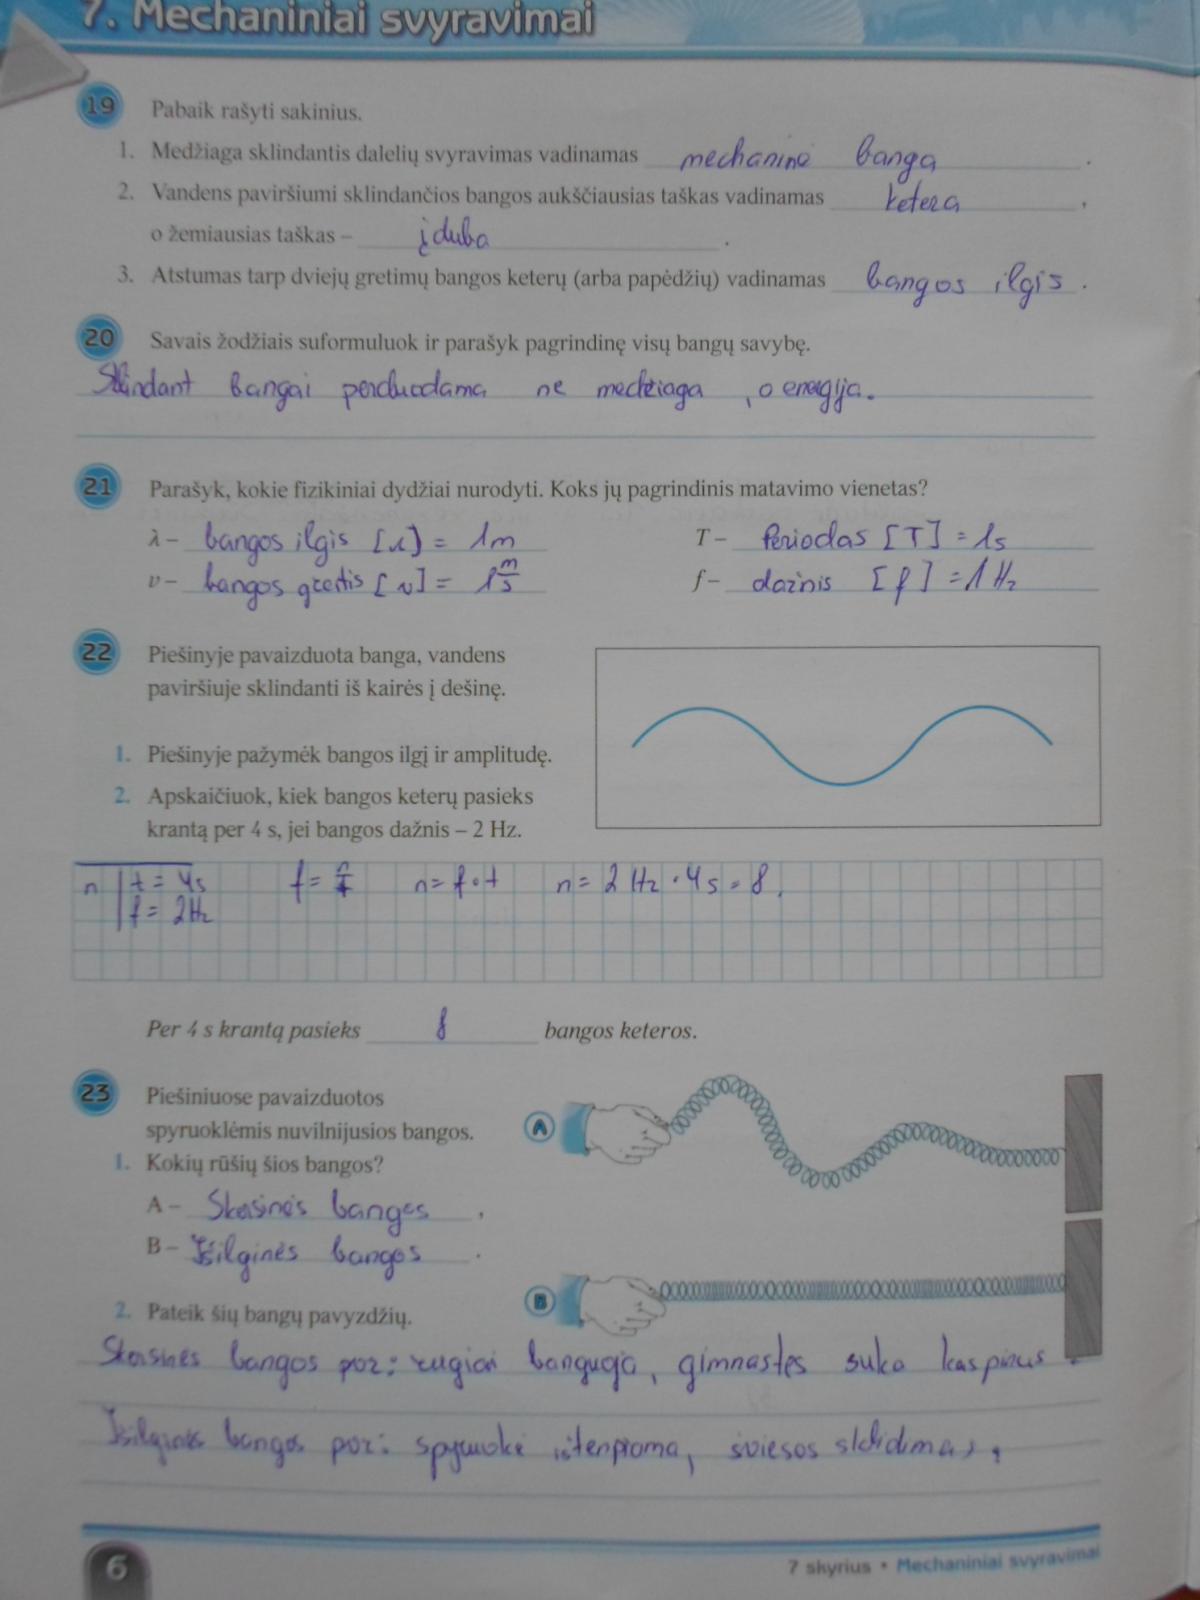 7. Mechaniniai svyravimai
19 Pabaik rašyti sakinius.
1. Medžiaga sklindantis dalelių svyravimas vadinamas mechaninė banga .
2. Vandens paviršiumi sklindančios bangos aukščiausias taškas vadinamas ketera ,
o žemiausias taškas – įduba .
3. Atstumas tarp dviejų gretimų bangos keterų (arba papėdžių) vadinamas bangos ilgis .
20 Savais žodžiais suformuluok ir parašyk pagrindinę visų bangų savybę.
Sklindant bangai perduodama ne medžiaga , o energija.
21 Parašyk, kokie fizikiniai dydžiai nurodyti. Koks jų pagrindinis matavimo vienetas?
λ – bangos ilgis [λ] = 1m T – Periodas [T] = 1s
v – bangos greitis [v] = 1 m/s f – dažnis [f] = 1 Hz
22 Piešinyje pavaizduota banga, vandens
paviršiuje sklindanti iš kairės į dešinę.
1. Piešinyje pažymėk bangos ilgį ir amplitudę.
2. Apskaičiuok, kiek bangos keterų pasieks
krantą per 4 s, jei bangos dažnis – 2 Hz.
n t = 4s f = n/t n = f · t n = 2 Hz · 4 s = 8.
f = 2Hz
Per 4 s krantą pasieks 8 bangos keteros.
23 Piešiniuose pavaizduotos
spyruoklėmis nuvilnijusios bangos.
A
1. Kokių rūšių šios bangos?
A – Skersinės bangos ,
B – Išilginės bangos .
B
2. Pateik šių bangų pavyzdžių.
Skersinės bangos pvz: rugiai banguoja, gimnastės suka kaspinus .
Išilginės bangos pvz: spyruoklė ištempiama, šviesos sklidimas,
6
7 skyrius • Mechaniniai svyravimai